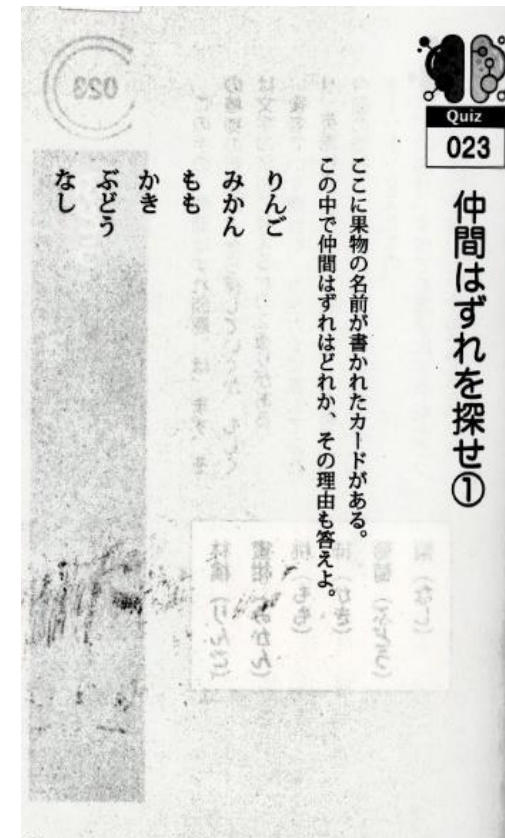 Quiz
023
仲間はずれを探せ①
ここに果物の名前が書かれたカードがある。
この中で仲間はずれはどれか、その理由も答えよ。
りんご
みかん
もも
かき
ぶどう
なし